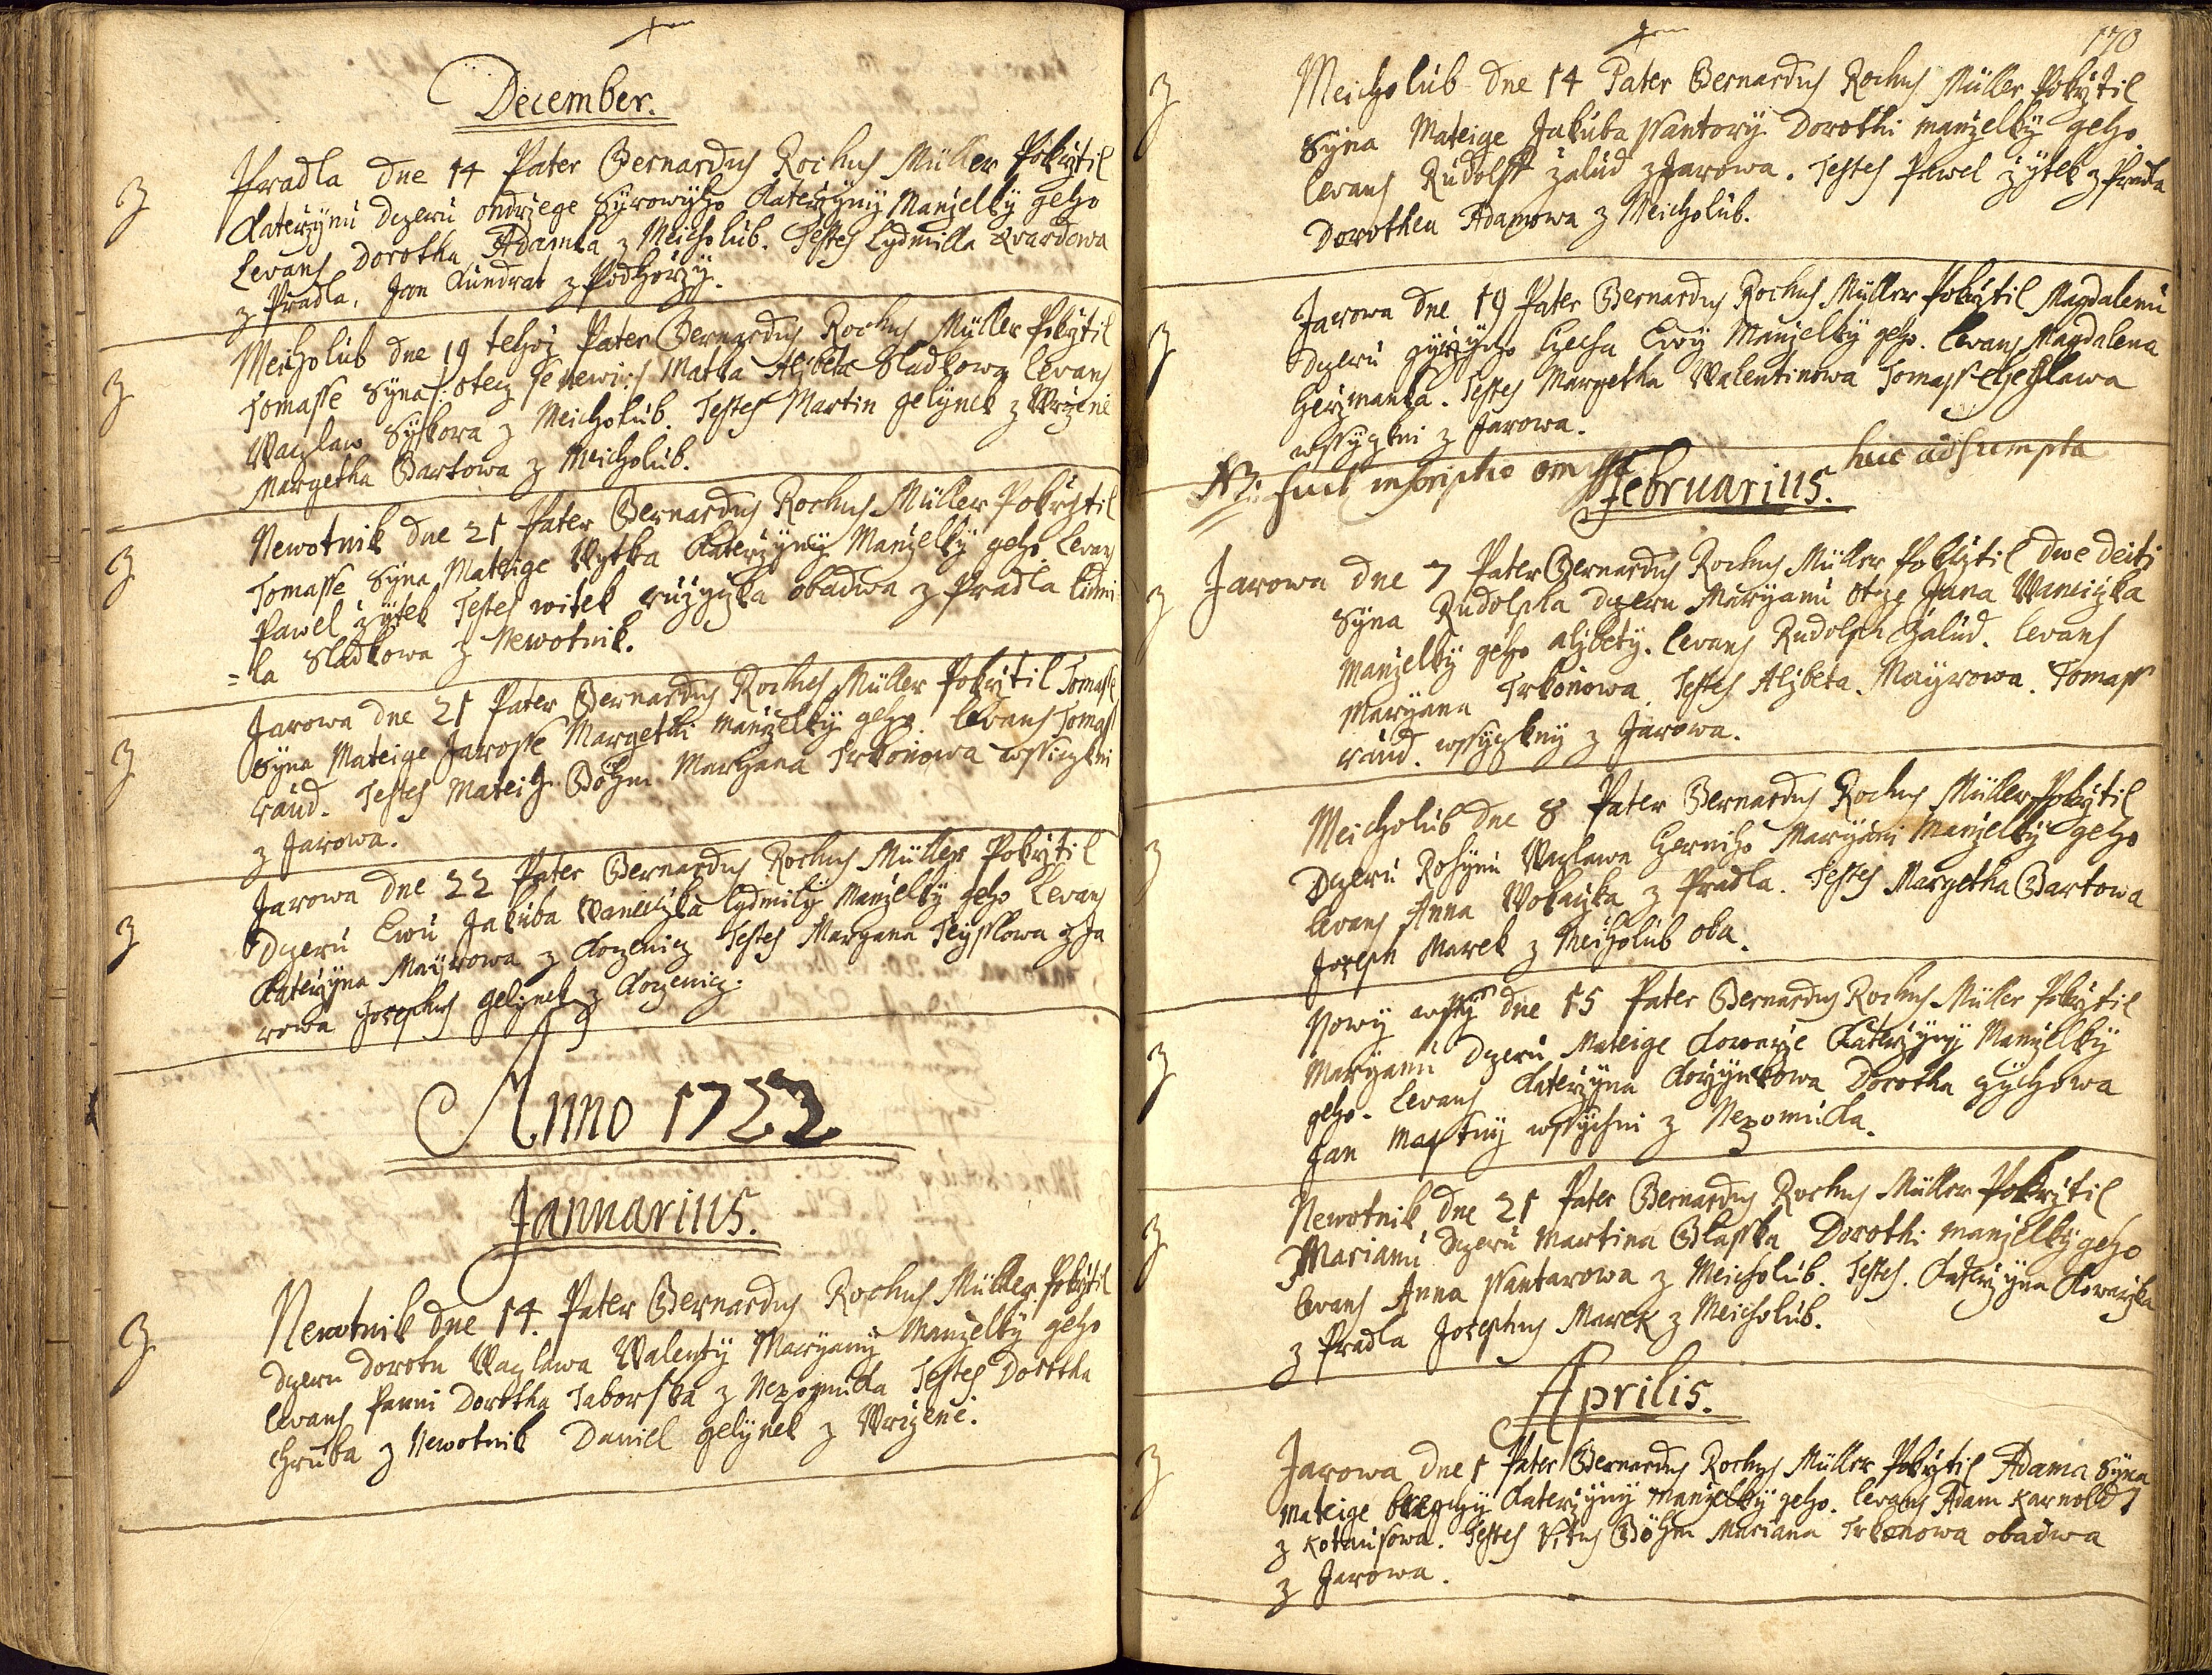 December.
Pradla dne 14 Pater Bernardus Rochus Müller Pokrztil
Katerzynu dczeru ondrzege Syrowyho Katerzyny Manzelky geho
Levans Dorotha Adamka z Meicholub. Testes Lydmilla
z Pradla. Jan Kundrat z Podhorzy.
Meicholub dne 19 tehoz Pater Bernardus Rochus Müller Pokrztil
Tomasse Syna: otecz se newi: Matka Alzbeta Sladkowa Levans
Waczlaw Sykora z Meicholub. Testes Martin gelynek z Wrzene
Margetha Bartowa z Meicholub.
Newotnik dne 21 Pater Bernardus Rochus Müller Pokrztil
Tomasse Syna Mateige Wytka Katerzyny Manzelky geho Levans
Pawel zytek Testes witek ruzyczka obadwa z Pradla Lidmi
=la Sladkowa z Newotnik.
Jarowa dne 21 Pater Bernardus Rochus Müller Pokrztil Tomasse
Syna Mateige Jarosse Margethi manzelky geho. Levans Tomass
raud. Testes Mateih Böhm Maryana Trkonowa wssiczkni
z Jarowa.
Jarowa dne 22 Pater Bernardus Rochus Müller Pokrztil
Dczeru Ewu Jakuba Wanieczka Lydmily Manzelky geho Levans
Katerzyna Mayrowa z Kozenicz Testes Maryana Teysslowa z Ja
rowa Josephus gelynek z Kozenicz.
Anno 1722
Jannarius.
Newotnik dne 14. Pater Bernardus Rochus Müller Pokrztil
Dczeru Dorotu Waczlawa Walenty Maryany Manzelky geho
Levans Panni Dorotha Taborska z Nepomuka Testes Dorotha
Chruba z Newotnik Daniel gelynek z Wrzene.
170
Meicholub dne 14 Pater Bernardus Rochus Müller Pokrztil
Syna Mateige Jakuba Nantory Dorothi manzelky geho
Levans Rudolff zalud z Jarowa. Testes Pawel zytek z Pradla
Dorothea Adamowa z Meicholub.
Jarowa dne 19 Pater Bernardus Rochus Müller Pokrztil Magdalenu
dczeru Czecha Ewy Manzelky geho. Levans Magdalena
Herzmanka. Testes Margetha Walentinowa Tomass
wssyczkni z Jarowa.
NB: fuit inscriptio omissa huc adsumpta
Februarius.
Jarowa dne 7 Pater Bernardus Rochus Müller Pokrztil dwe deiti
Syna Rudolpha dczeru Maryanu otcze Jana Wanieczka
Manzelky geho alzbety. Levans Rudolph zalud. Levans
Maryana Trkonowa. Testes Alzbeta Mayrowa. Tomass
raud. wssyczkny z Jarowa.
Meicholub dne 8 Pater Bernardus Rochus Müller Pokrztil
Dczeru Rosynu Waczlawa Herniho Maryani Manzelky geho
Levans Anna Wokaczka z Pradla. Testes Margetha Bartowa
Joseph Marek z Meicholub oba.
Nowy wssy dne 15 Pater Bernardus Rochus Müller Pokrztil
Maryanu Dczeru Mateige Kowarze Katerzyny Manzelky
geho. Levans Katerzyna Korzynkowa Dorotha
Jan Mastny wssychni z Nepomuka.
Newotnik dne 21 Pater Bernardus Rochus Müller Pokrztil
Marianu Dczeru Martina Blasska Dorothi manzelky geho
Levans Anna Nantarowa z Meicholub. Testes. Katerzyna Kowarzka
z Pradla Josephus Marek z Meicholub.
Aprilis.
Jarowa dne 1 Pater Bernardus Rochus Müller Pokrztil Adama Syna
Mateige Katerzyny manzelky geho. Levans Adam Karnold
z Kotausowa. Testes Vitus Böhm Mariana Trkonowa obadwa
z Jarowa.